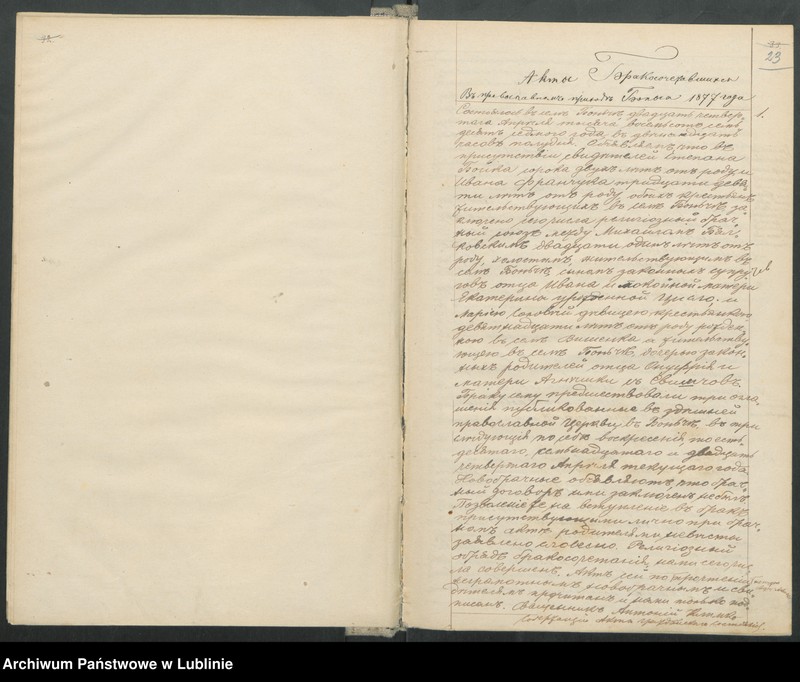 23
Акты Бракосочетавшихся
Въ православномъ приходѣ Бонча 1877 года
1.
Состоялось въ селѣ Бончѣ двадцать четвер-
таго Апрѣля тысяча восемьсотъ семь
десятъ седмого года въ двѣнадцать
часовъ полудня. Объявляемъ, что въ
присутствіи свидѣтелей Степана
Бойка сорока двухъ лѣтъ отъ роду и
Ивана Франчука тридцати девя-
ти лѣтъ отъ роду обоихъ крестьянъ
жительствующихъ въ селѣ Бончѣ за
ключено сего числа религіозный брач-
ный союзъ между Михаиломъ
двадцати одинъ лѣтъ отъ
роду, холостымъ, жительствующимъ въ
селѣ Бончѣ сыномъ законныхъ супру-
говъ отца Ивана и покойной матери
Екатерины урожденной и
Маріею дѣвицею крестьянкою
девятнадцати лѣтъ отъ роду рожден
ною въ селѣ и жительству
ющею въ селѣ Бончѣ, дочерью закон-
ныхъ родителей отца Онуфрія и
матери
Браку сему предшествовали три огла-
шенія публикованные въ здѣшней
православной Церкви въ Бончѣ, въ три
слѣдующія по себѣ воскресенія то есть
десятаго, семьнадцатаго и двадцать
четвертаго Апрѣля текущаго года
Новобрачные объявляютъ что брач-
ный договоръ ими заключенъ небылъ
Позволеніе на вступленіе въ бракъ
присутствующими лично при брач-
номъ актѣ родителями невѣсты
заявлено словесно. Религіозный
обрядъ бракосочетанія нами сего чис
ла совершенъ. Актъ сей по прочтеніи
неграмотнымъ новобрачнымъ и сви
дѣтелямъ прочитанъ и нами только под
писанъ. Священникъ Антоній
Содержащій Акты гражданскаго состоянія.
Archiwum Państwowe w Lublinie